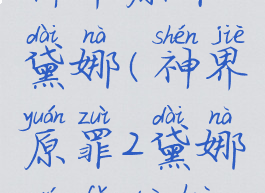 dài nà shén jiè
黛娜(神界
yuán zuì dài nà
原罪2黛娜